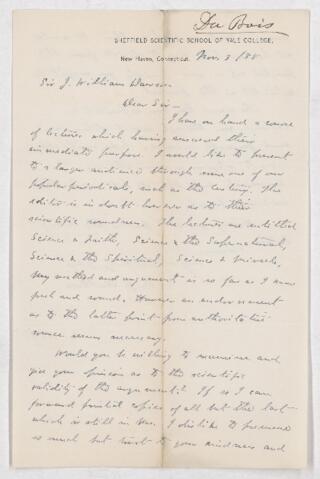 Du Bois
SHEFFIELD SCIENTIFIC SCHOOL OF YALE COLLEGE.
New Haven, Connecticut, Nov. 3 188
Sir J. William Dawson
Dear Sir—
I have on hand a course
of lectures which having answered their
immediate purpose I would like to present
to a larger audience through some one of our
popular periodicals, such as the Century. The
editor is in doubt however as to their
scientific soundness. The lectures are entitled
Science & Faith, Science & the Supernatural,
Science & the Spiritual, Science & Miracle.
My method and argument is so far as I know
fresh and sound. However an endorsement
as to the latter point from authoritative
source seems necessary.
Would you be willing to examine and
give your opinion as to the scientific
validity of the argument? If so I can
forward printed copies of all but the last
which is still in Ms. I dislike to presume
so much but trust to your kindness and